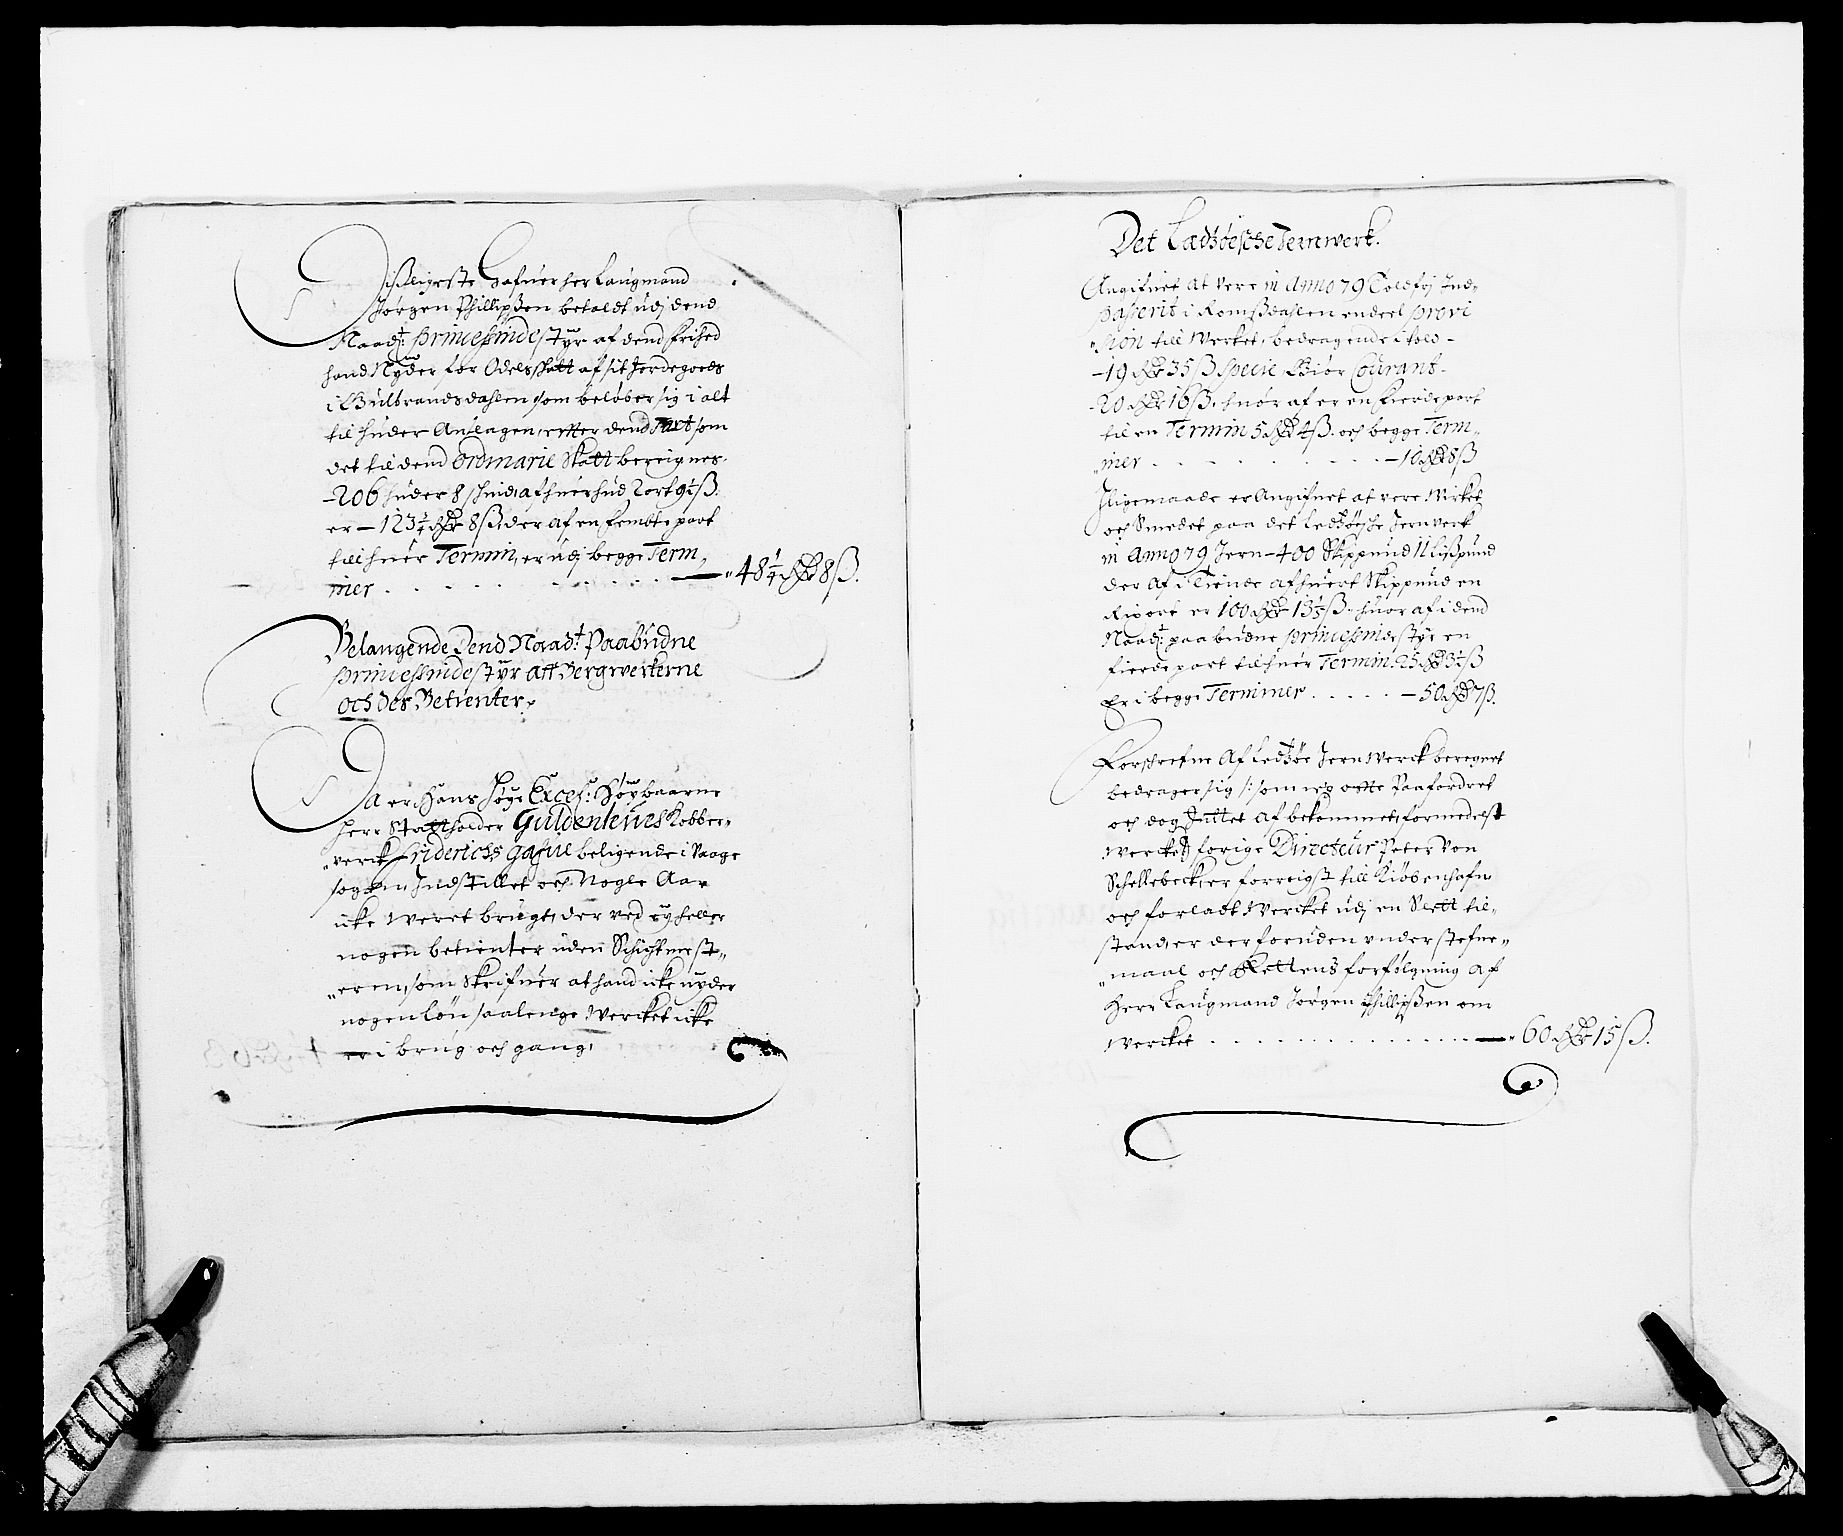 Disligeste Hafuer her Laugmand
Jørgen Phillipßen betaldt udj dend
Naad: Princessinde styr af dend frihed
hand Nyder for Odelsskatt af sit Jordegoeds
i Gulbrandsdahlen, som beløber sig i alt
til huder Anslagen, efter dend Taxt som
det til dend Ordinarie Skatt bereignes
206 huder 8 skind, af huer hud 2 ort 9½ ß.
er - 123½ Rdr 8 ß, der af en fembte part
till huer Termin, er udj begge Termi„
„ner . . . . . . . . . — „ 48¼ Rdr 8 ß.
Belangende Dend Naad: Paabudne
Princessinde styr Aff Bergwerkerne
och des Betienter.
Da er Hans Høye Excel: Høybaarne
Herr Statholder Guldenleues Kobber„
„verck Friderichs Gafue beligende i Vaage
sogn, Indstillet och Nogle Aar
icke weret brugt, der ved ey heller
nogen betienter uden Schichtmest„
„eren, som Skrifuer at hand icke nyder
nogen løn saalenge Wercket icke
er i brug och gang,
Det Ledsøesche Jernwerk.
Angifuet at vere in Anno 79 Toldfrj Ind„
passerit i Romßdahlen endeel provi
„sion till Werket, bedragende i told -
- 19 Rdr 35 ß Specie Giør Courant -
- 20 Rdr 16 ß. huor af er en fierdepart
til en Termin 5 Rdr 4 ß. och begge Termi„
„ner . . . . . . . . . — 10 Rdr 8 ß
Jligemaade er Angifuet at vere Wirket
och Smedet paa det Ledsøesche Jernverk
in Anno 79 Jern - 400 Skippund 11 Lißpund
der af i Tiende af huert Skippund en
Rixort er 100 Rdr 13⅕ ß. huor af i dend
Naad: paabudne Princessinde styr en
fierdepart til huer Termin 25 Rdr 3½ ß
Er i begge Terminer . . . . . — 50 Rdr 7 ß.
Forschrefne Af Ledsøe Jern Werck beregnet
bedrager sig /: som ieg offte Paafordret
och dog Jnttet af bekommet, formedelst
Werckes forige Directeur Peter Von
Schellebeck, er forreigst till Kiøbenhafn
och forladt Wercket udj en Slett til„
stand, er der foruden under stefne„
„maal och Rettens forfølgning af
Herr Laugmand Jørgen Phillipßen om
Wercket . . . . . . . . . . . . — „ 60 Rdr 15 ß.